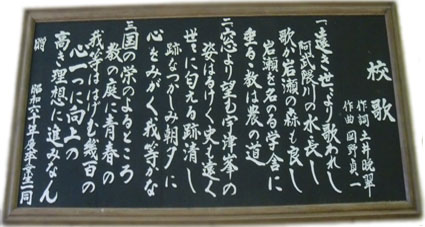 校歌
作詞 土井晩翠
作曲 岡野貞一
一、遠き世ゝより歌われし
阿武隈川の水長し
歌か岩瀬の森も良し
岩瀬を名のる学舎に
垂るる教は農の道
二、窓より望む宇津峯の
姿はるけく史も遠く
世ゝに匂える跡清し
跡なつかしみ朝夕に
心をみがく我等かな
三、国の学のよるところ
教の庭に青春の
我等ははげむ幾百の
心一つに向上の
高き理想に進みなん
贈 昭和六十年度卒業生一同